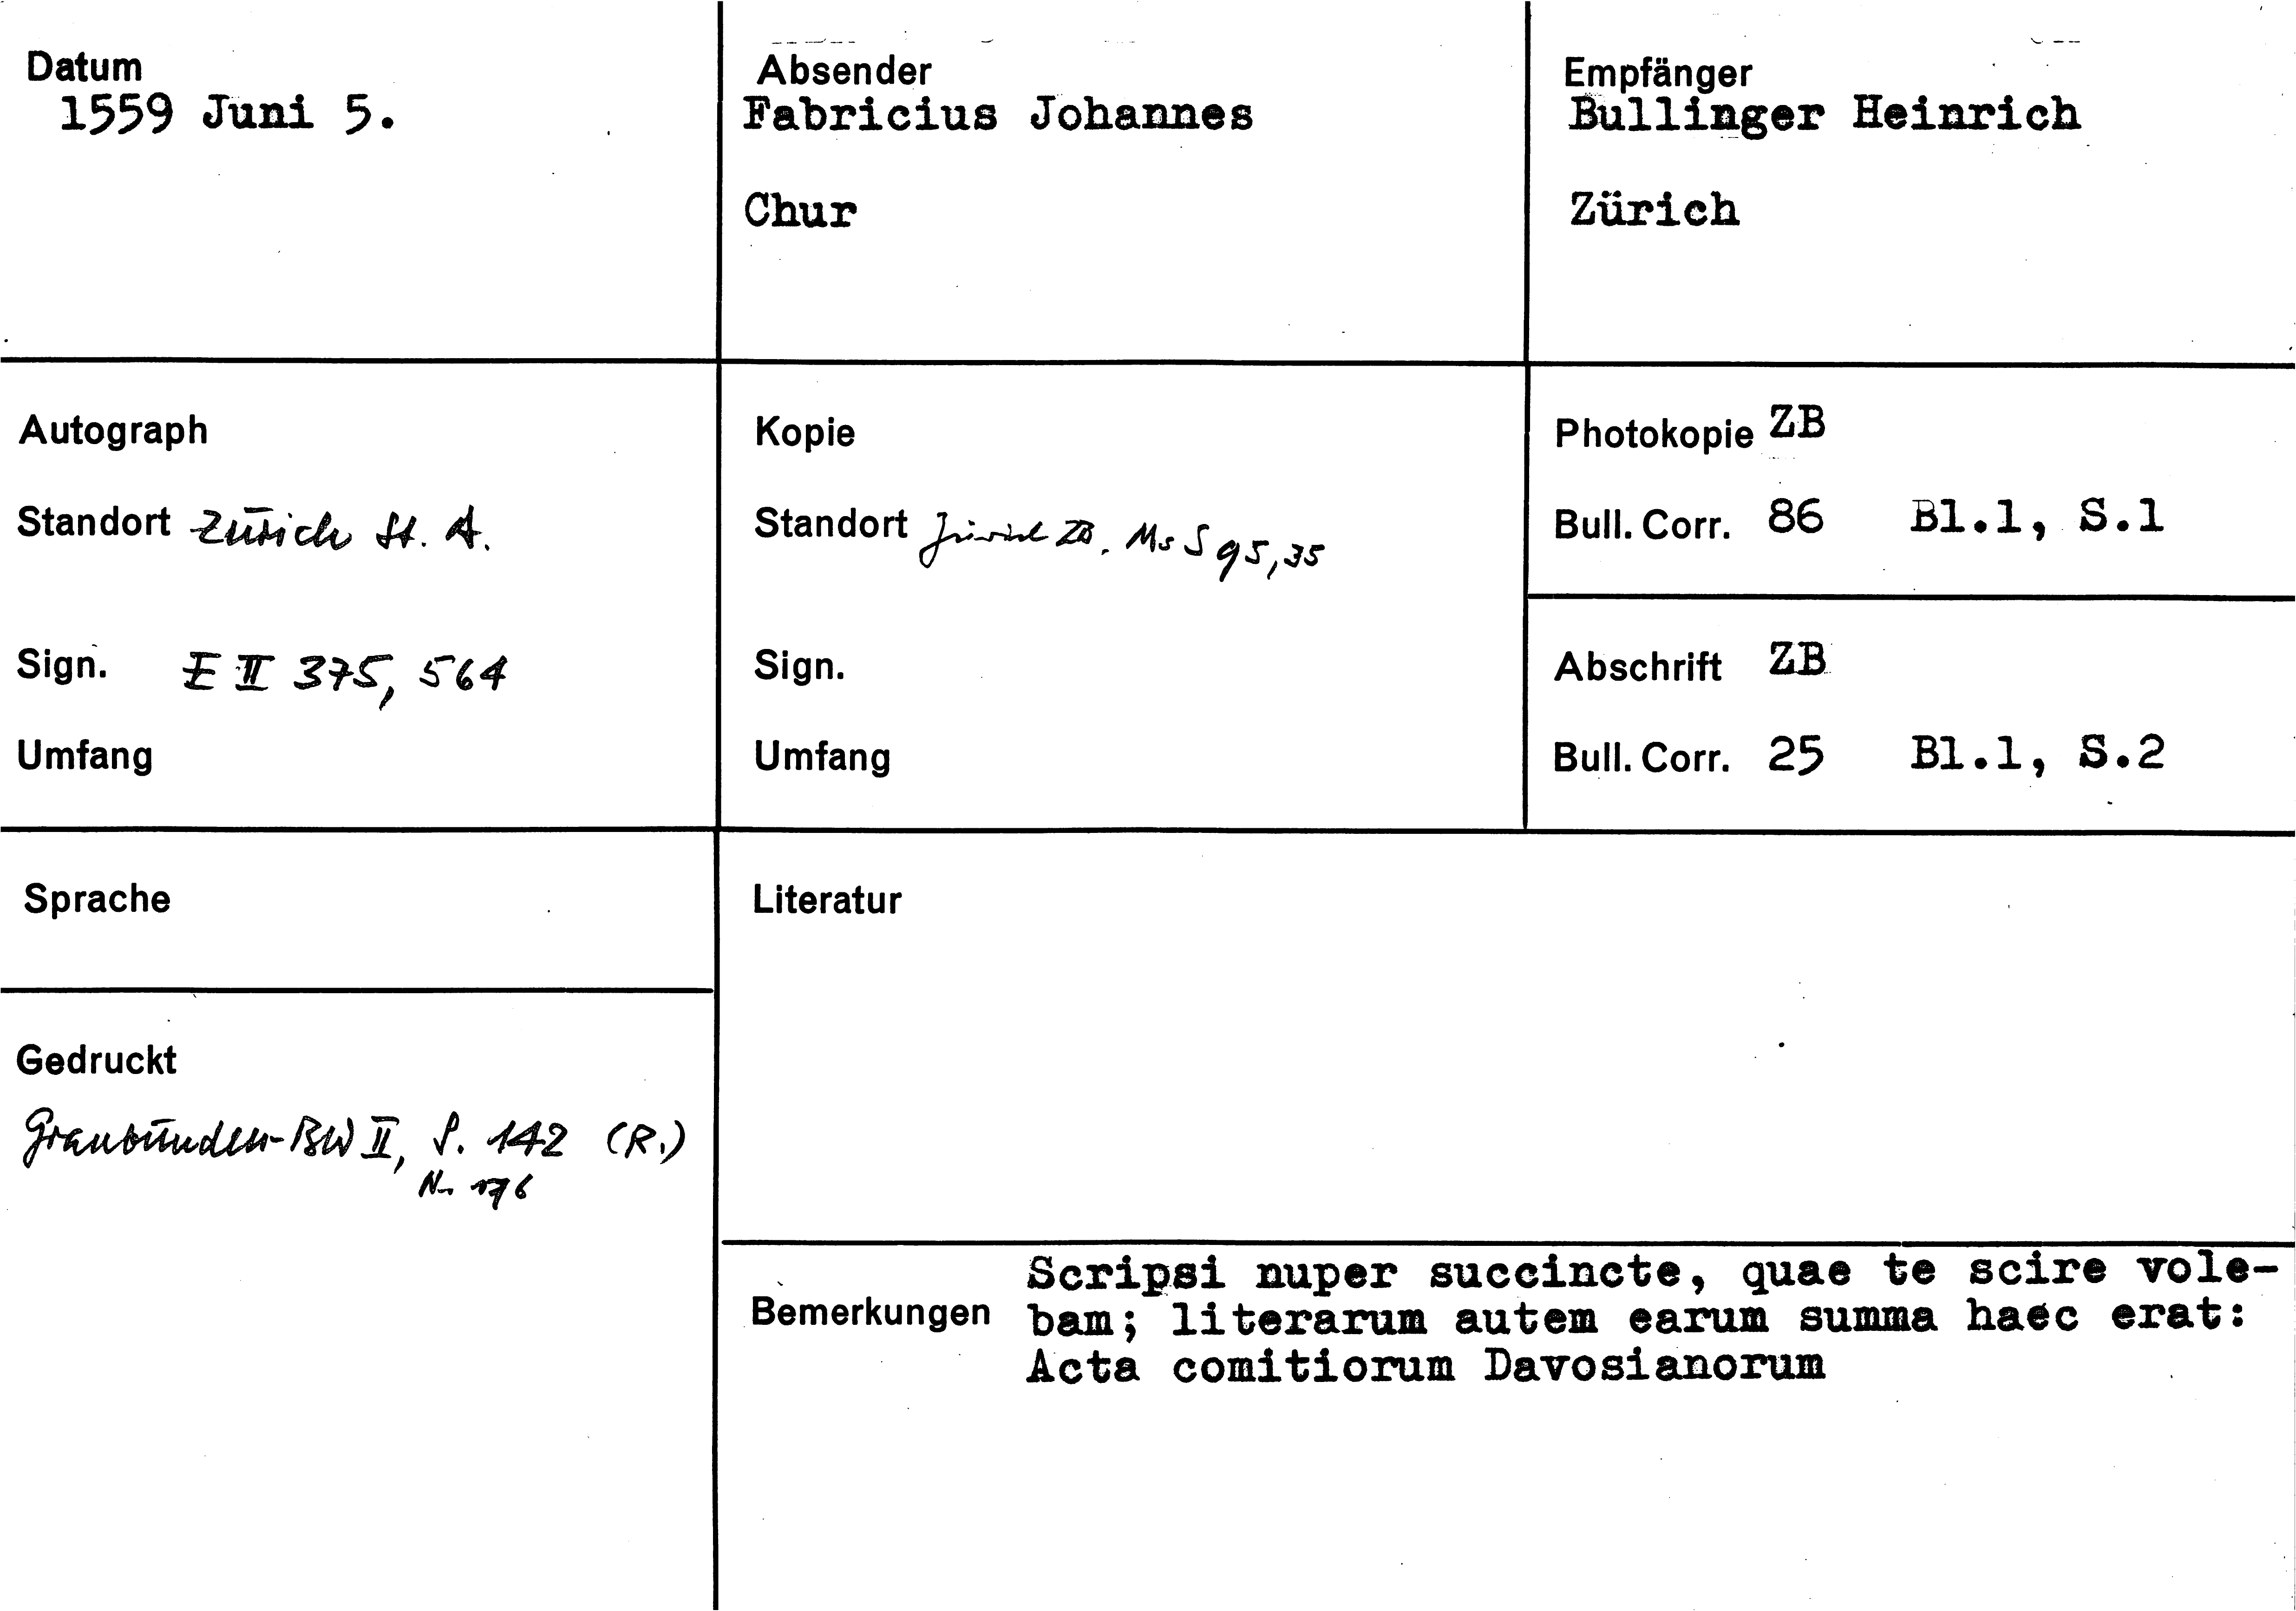 Datum
1559 Juni 5.
Absender
Fabricius Johannes
Chur
Empfänger
Bullinger Heinrich
Zürich
Autograph
Standort Zürich St. A.
Sign. E II 375, 564
Umfang
Kopie
Standort Zürich ZB. Ms S 95,35
Sign.
Umfang
Photokopie ZB
Bull. Corr. 86 Bl.1, S.1
Abschrift ZB
Bull. Corr. 25 Bl.1, S.2
Sprache
Gedruckt
Graubünden-BW II, S. 142 (R.)
Nr. 176
Literatur
Bemerkungen
Scripsi nuper succincte, quae te scire vole-
bam; literarum autem earum summa haec erat:
Acta comitiorum Davosianorum